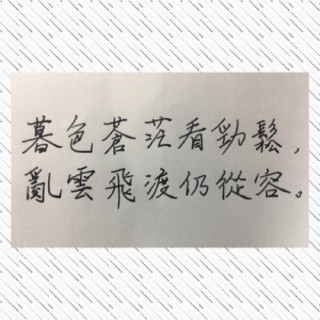 暮色蒼茫看勁鬆，
亂雲飛渡仍從容。